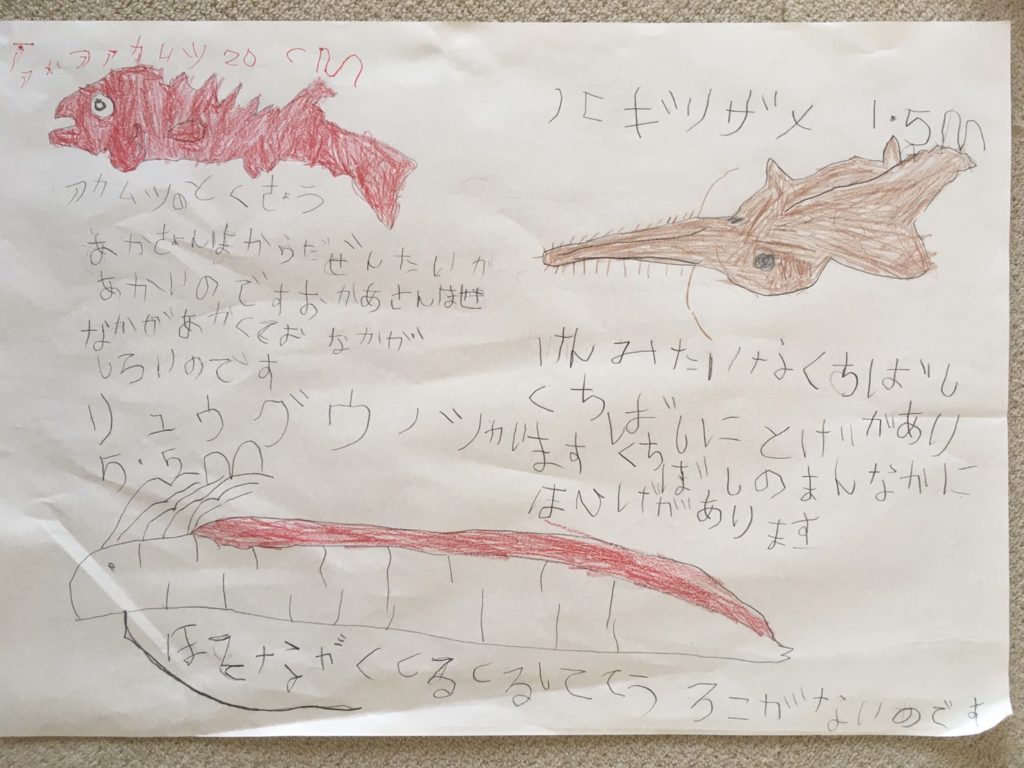 アカムツ 20cm
アカムツのとくちょう
あかちゃんはからだぜんたいが
あかいのですおかあさんはせ
なかがあかくておなかが
しろいのです
ノコギリザメ 1.5m
けんみたいなくちばし
くちばしにとげがあり
ます くちばしのまんなかに
はひげがあります
リュウグウノツカイ
5.5m
ほそながくてつるつるしててう
ろこがないのです